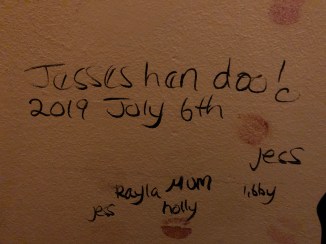 Jesses hen doo!
2019 July 6th
Jess
Kayla Mum libby
jess holly